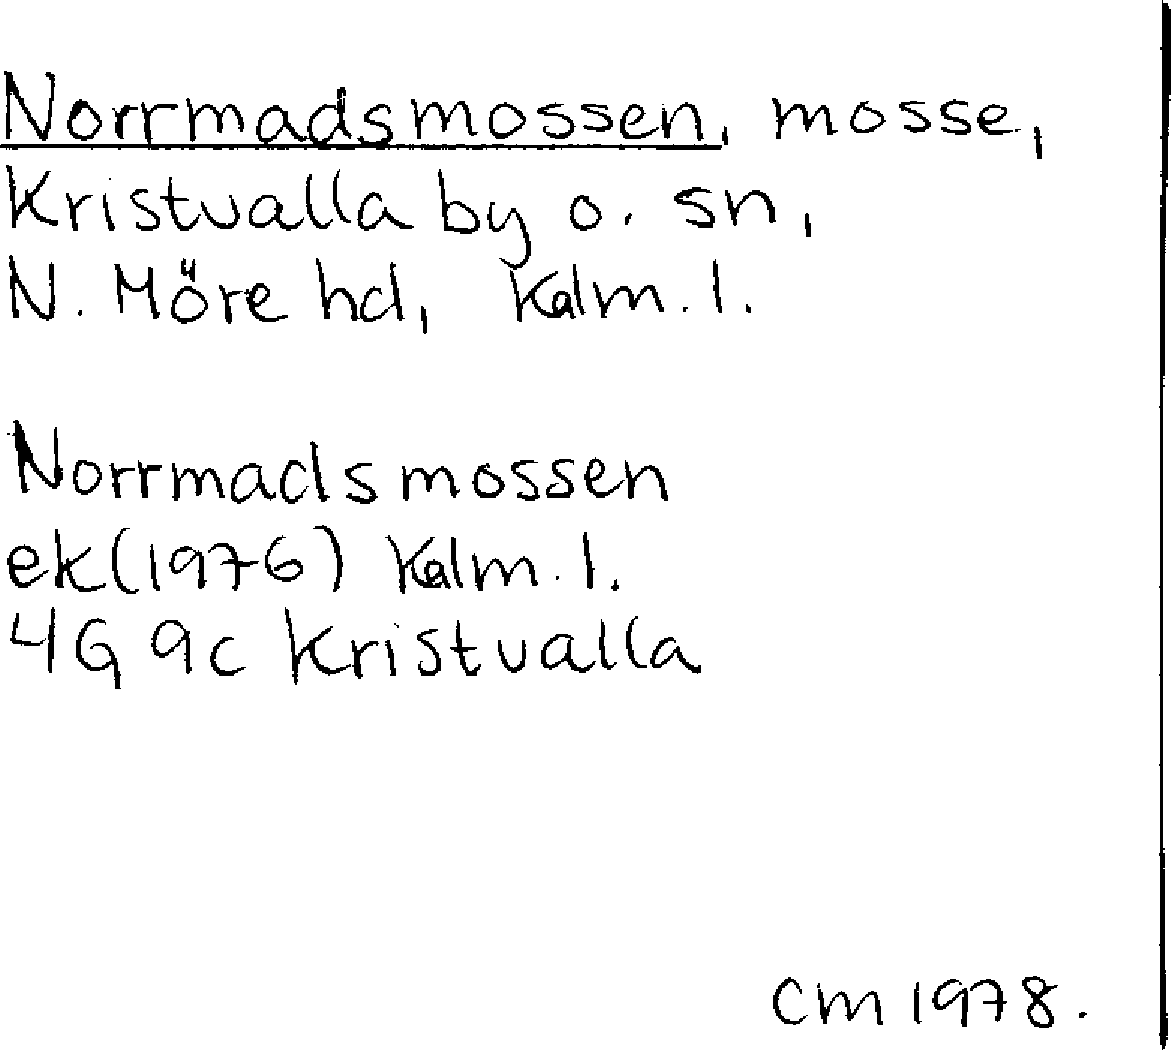 Norrmadsmossen, mosse,
Kristvalla by o. sn,
N. Möre hd, Kalm. l.
Norrmadsmossen
ek(1976) Kalm. l.
4G 9c Kristvalla
CM 1978.